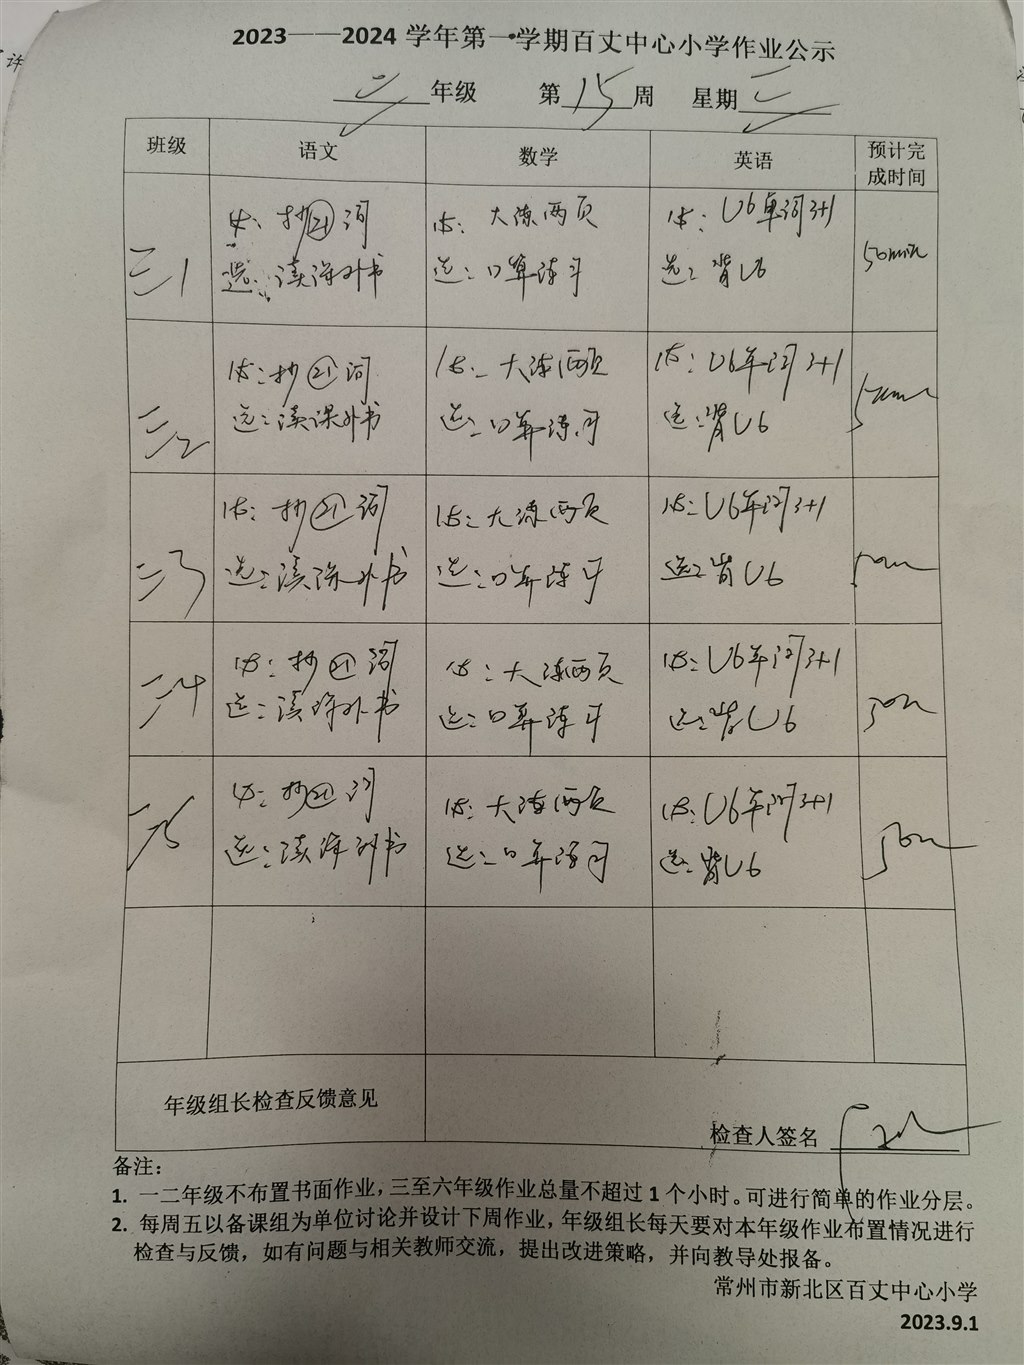 许
2023——2024 学年第一学期百丈中心小学作业公示
三 年级 第 15 周 星期 三
班级 语文 数学 英语 预计完成时间
三1
必: 抄㉑词
选: 读课外书
必: 大练两页
选: 口算练习
必: U6单词3+1
选: 背U6
50min
三2
必: 抄㉑词
选: 读课外书
必: 大练两页
选: 口算练习
必: U6单词3+1
选: 背U6
三3
必: 抄㉑词
选: 读课外书
必: 大练两页
选: 口算练习
必: U6单词3+1
选: 背U6
三4
必: 抄㉑词
选: 读课外书
必: 大练两页
选: 口算练习
必: U6单词3+1
选: 背U6
三5
必: 抄㉑词
选: 读课外书
必: 大练两页
选: 口算练习
必: U6单词3+1
选: 背U6
年级组长检查反馈意见
检查人签名
备注:
1. 一二年级不布置书面作业,三至六年级作业总量不超过 1 个小时。可进行简单的作业分层。
2. 每周五以备课组为单位讨论并设计下周作业,年级组长每天要对本年级作业布置情况进行
检查与反馈,如有问题与相关教师交流,提出改进策略,并向教导处报备。
常州市新北区百丈中心小学
2023.9.1